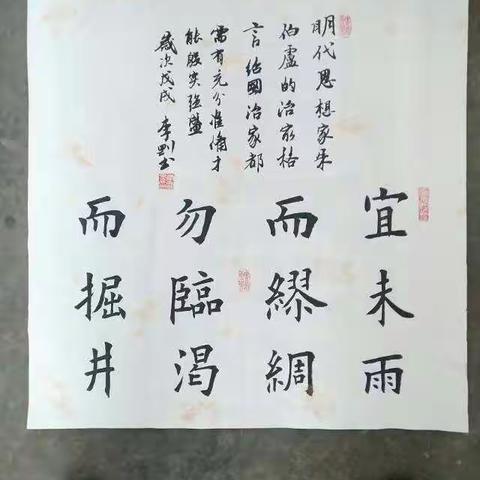 明代思想家朱
伯盧的治家格
言 國治家都
需有充分准備才
能殷实强盛
歲次戊戌 李 书
宜未雨
而繆綢
勿臨渴
而掘井